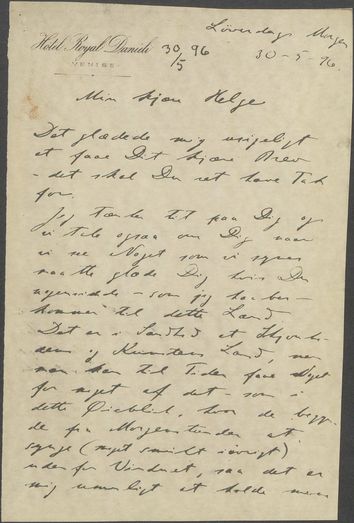 Løverdags Morgen
Hotel Royal Danieli 30/5 96
VENISE
30-5-96.
Min kjære Helge
Det glædede mig usigeligt
at faae Dit kjære Brev
- det skal Du ret have Tak
for.
Jeg tænker tit paa Dig og
vi tale ogsaa om Dig naar
vi see Noget som vi synes
maatte glæde Dig hvis Du
- som jeg haaber -
kommer til dette Land.
Det er i Sandhed et Skjønhe-
dens og Kunstens Land, men
man kan til Tider faae Noget
for meget af det - som i
dette Øieblik, hvor de begyn-
de fra Morgenstunden at
synge (meget smukt iøvrigt)
uden for Vinduet, saa det er
mig umuligt at holde mine